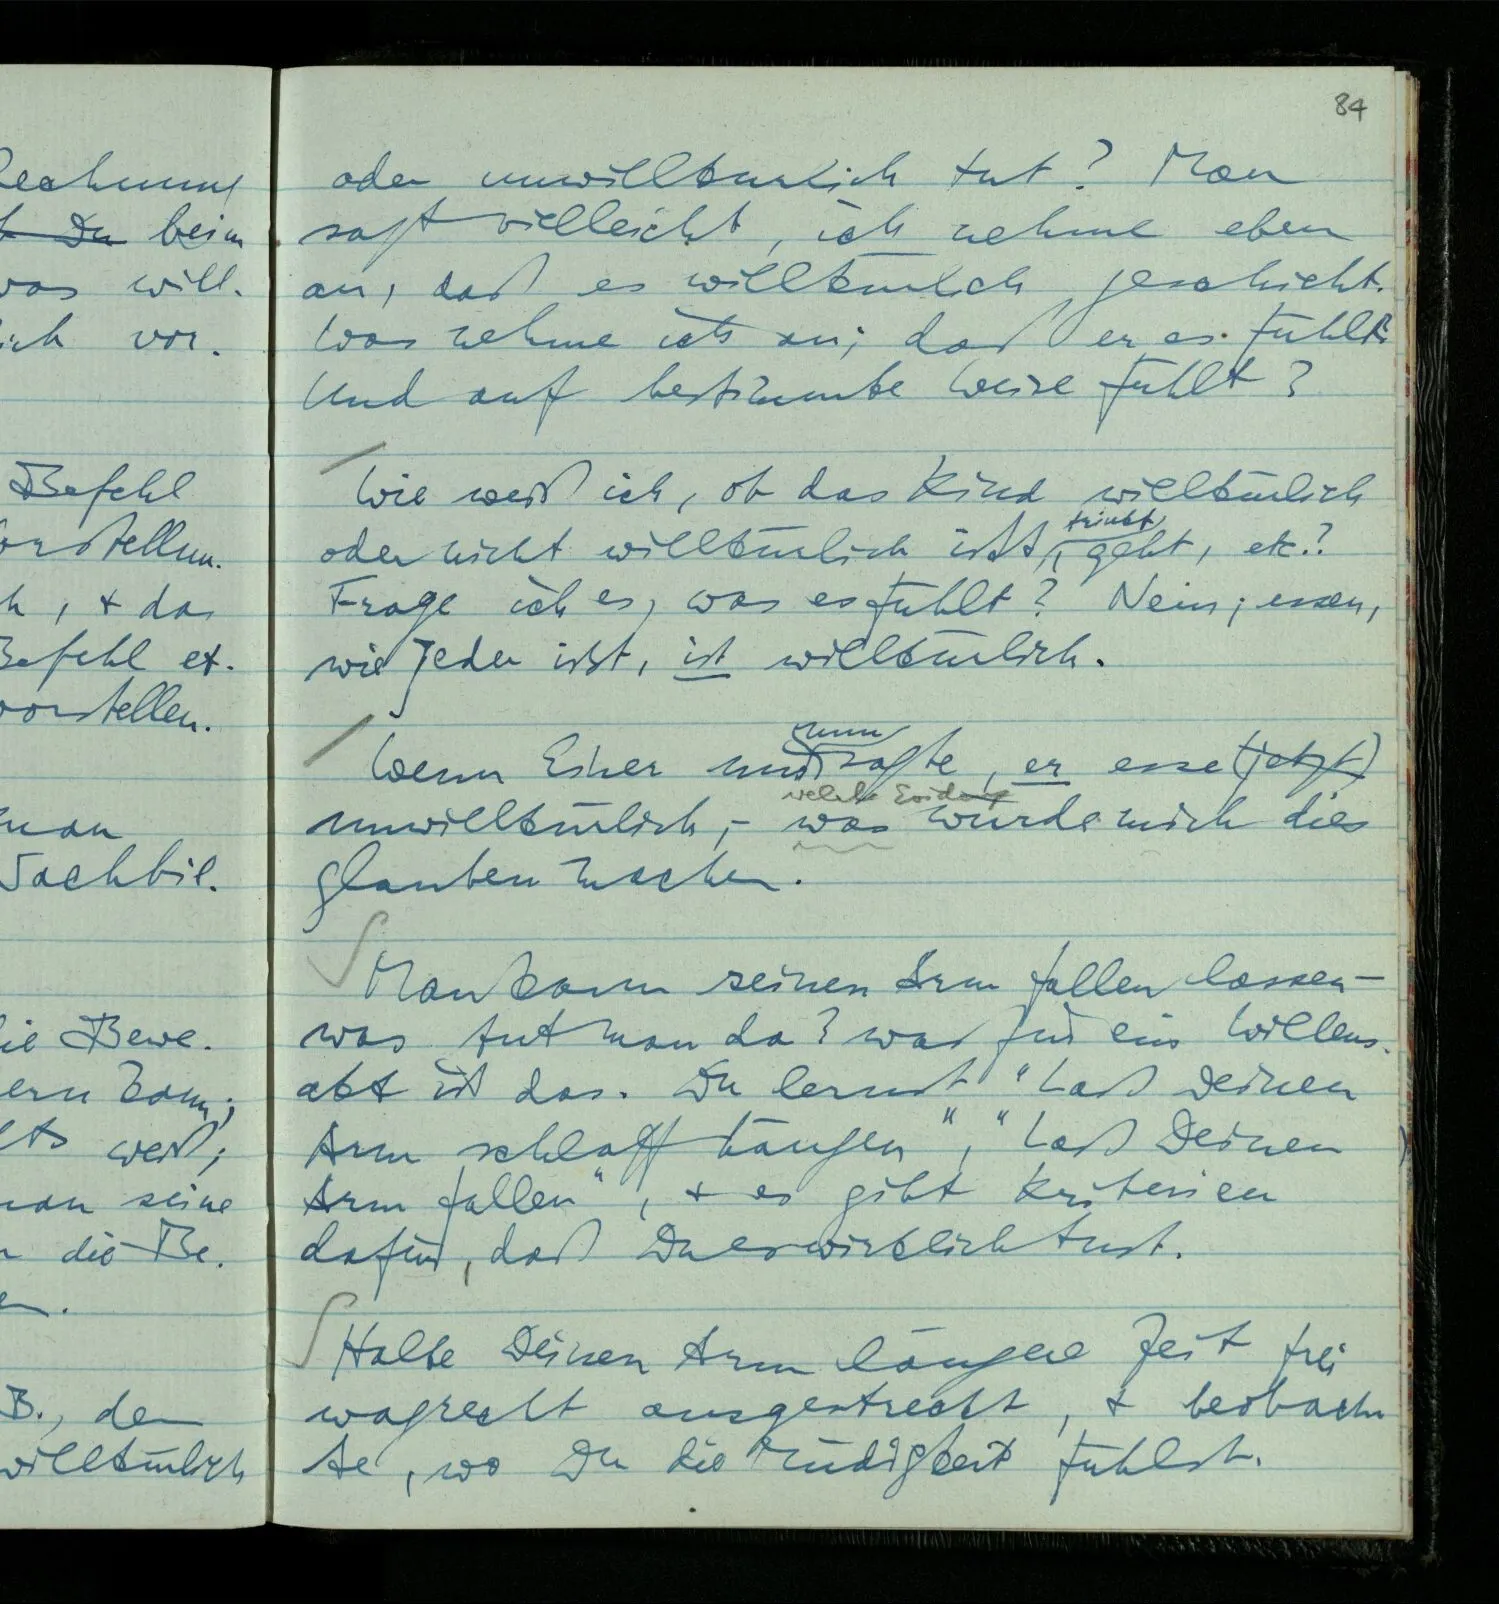 84
Rechnung
t Du beim
was will-
lich vor.
Befehl
vorstellen.
h, + das
Befehl et-
vorstellen.
man
Sachbil-
die Bewe-
ern kann;
weiß;
man seine
die Be-
en.
B., der
willkürlich
oder unwillkürlich tut? Man
sagt vielleicht, ich nehme eben
an, daß es willkürlich geschieht.
Was nehme ich an; daß er es fühlt?
Und auf bestimmte Weise fühlt?
Wie weiß ich, ob das Kind willkürlich
oder nicht willkürlich ißt, trinkt, geht, etc.?
Frage ich es, was es fühlt? Nein; essen,
wie jeder ißt, ist willkürlich.
Wenn Einer uns nun sagte, er esse (jetzt)
welche Evidenz
unwillkürlich, – was würde mich dies
glauben machen.
Man kann seinen Arm fallen lassen –
was tut man da? was für ein Willens-
akt ist das. Du lernst "Laß Deinen
Arm schlaff hängen", "Laß Deinen
Arm fallen", + es gibt Kriterien
dafür, daß Du es wirklich tust.
Halte Deinen Arm längere Zeit frei
wagrecht ausgestreckt, + beobach
te, wo Du die Müdigkeit fühlst.